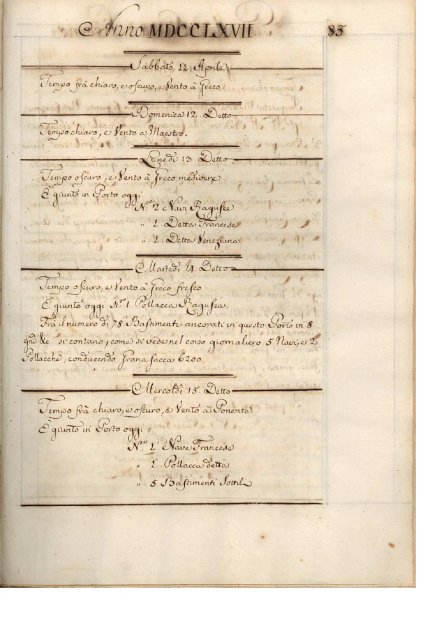 Anno MDCCLXVII 85
Sabbato 11 Aprile
Tempo frà chiaro, e oscuro, e Vento à Greco.
Domenica 12. Detto
Tempo chiaro, e Vento a Maestro.
Lunedi 13 Detto
Tempo oscuro, e Vento à Greco mediocre.
È giunto in Porto oggi
N.º 2 Navi Ragusee
" 1. Detta Francese
" 1. Detta Veneziana
Martedi 14 Detto
Tempo oscuro, e Vento à Greco fresco
È giunto oggi N.º 1. Pollacca Ragusea.
Frà il numero di 78 Bastimenti ancorati in questo Porto in 8
si contano, come si vede nel corso giornaliero 5 Navi, e 2
Pollacche, conducendo Grana sacca 6200.
Mercoldi 15 Detto
Tempo frà chiaro, e oscuro, e Vento à Ponente
È giunto in Porto oggi
N.º 1 Nave Francese
" 1. Pollacca detta
" 5 Bastimenti Sottili